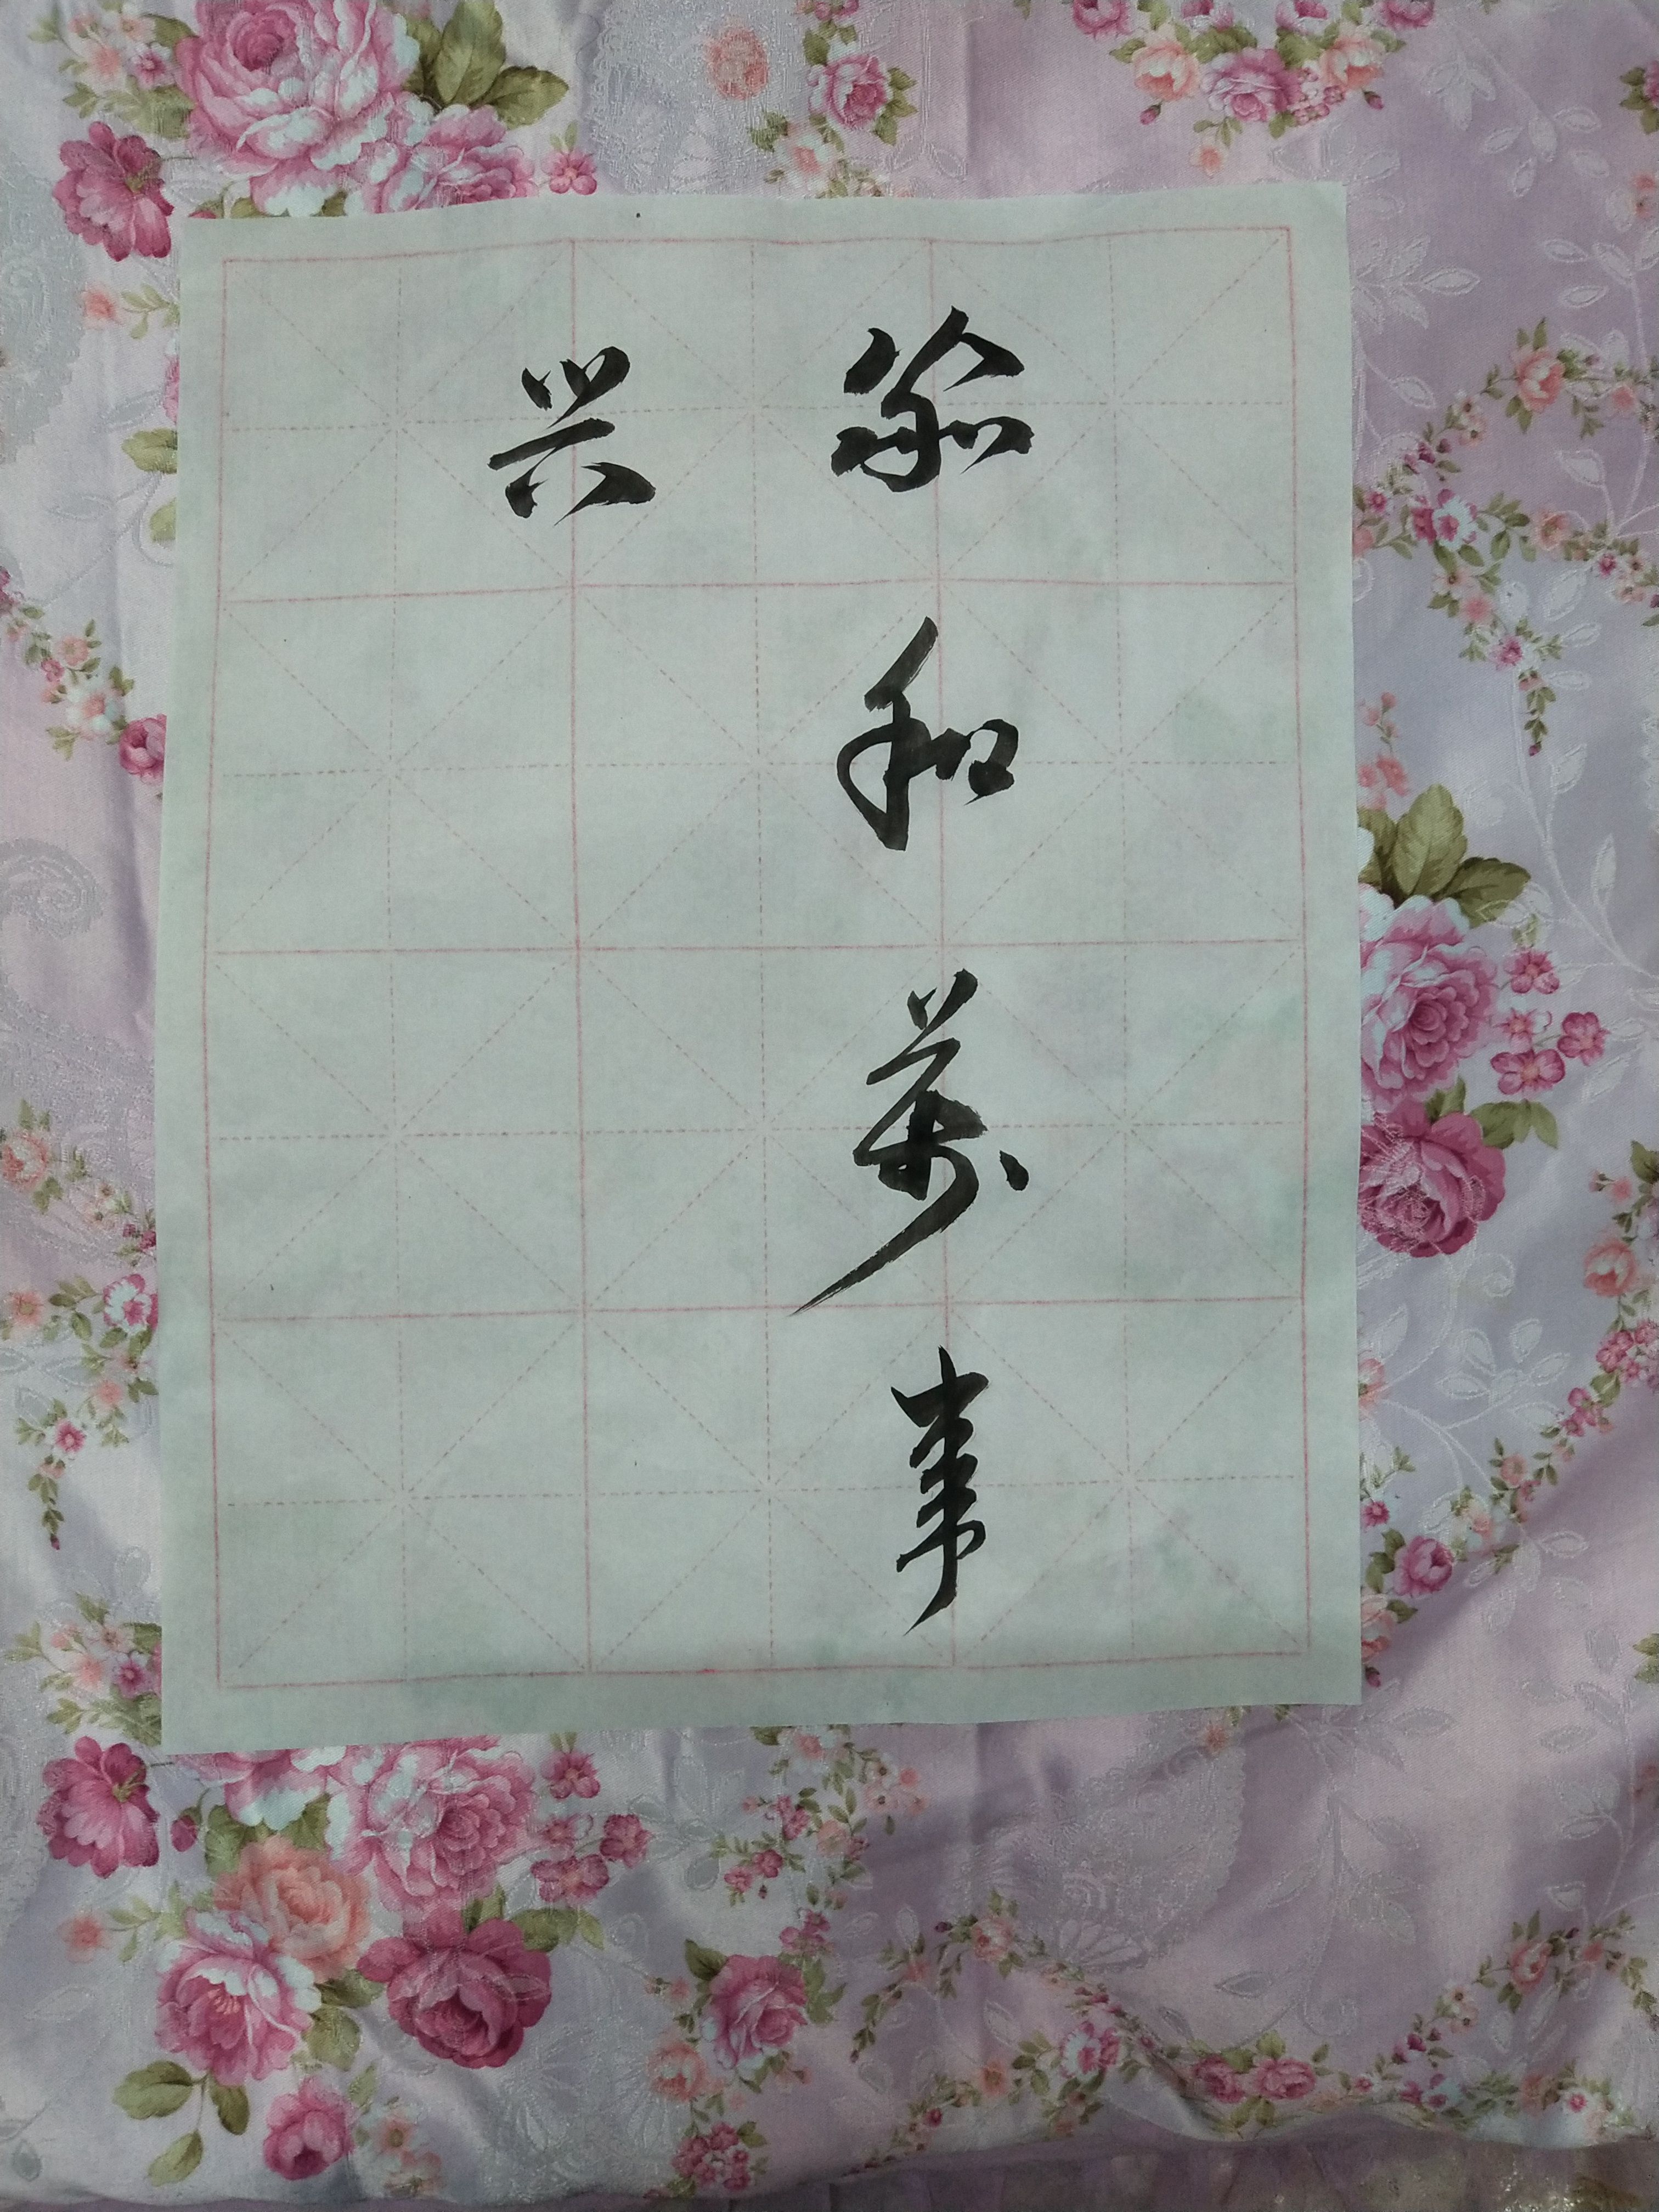 家和萬事
兴